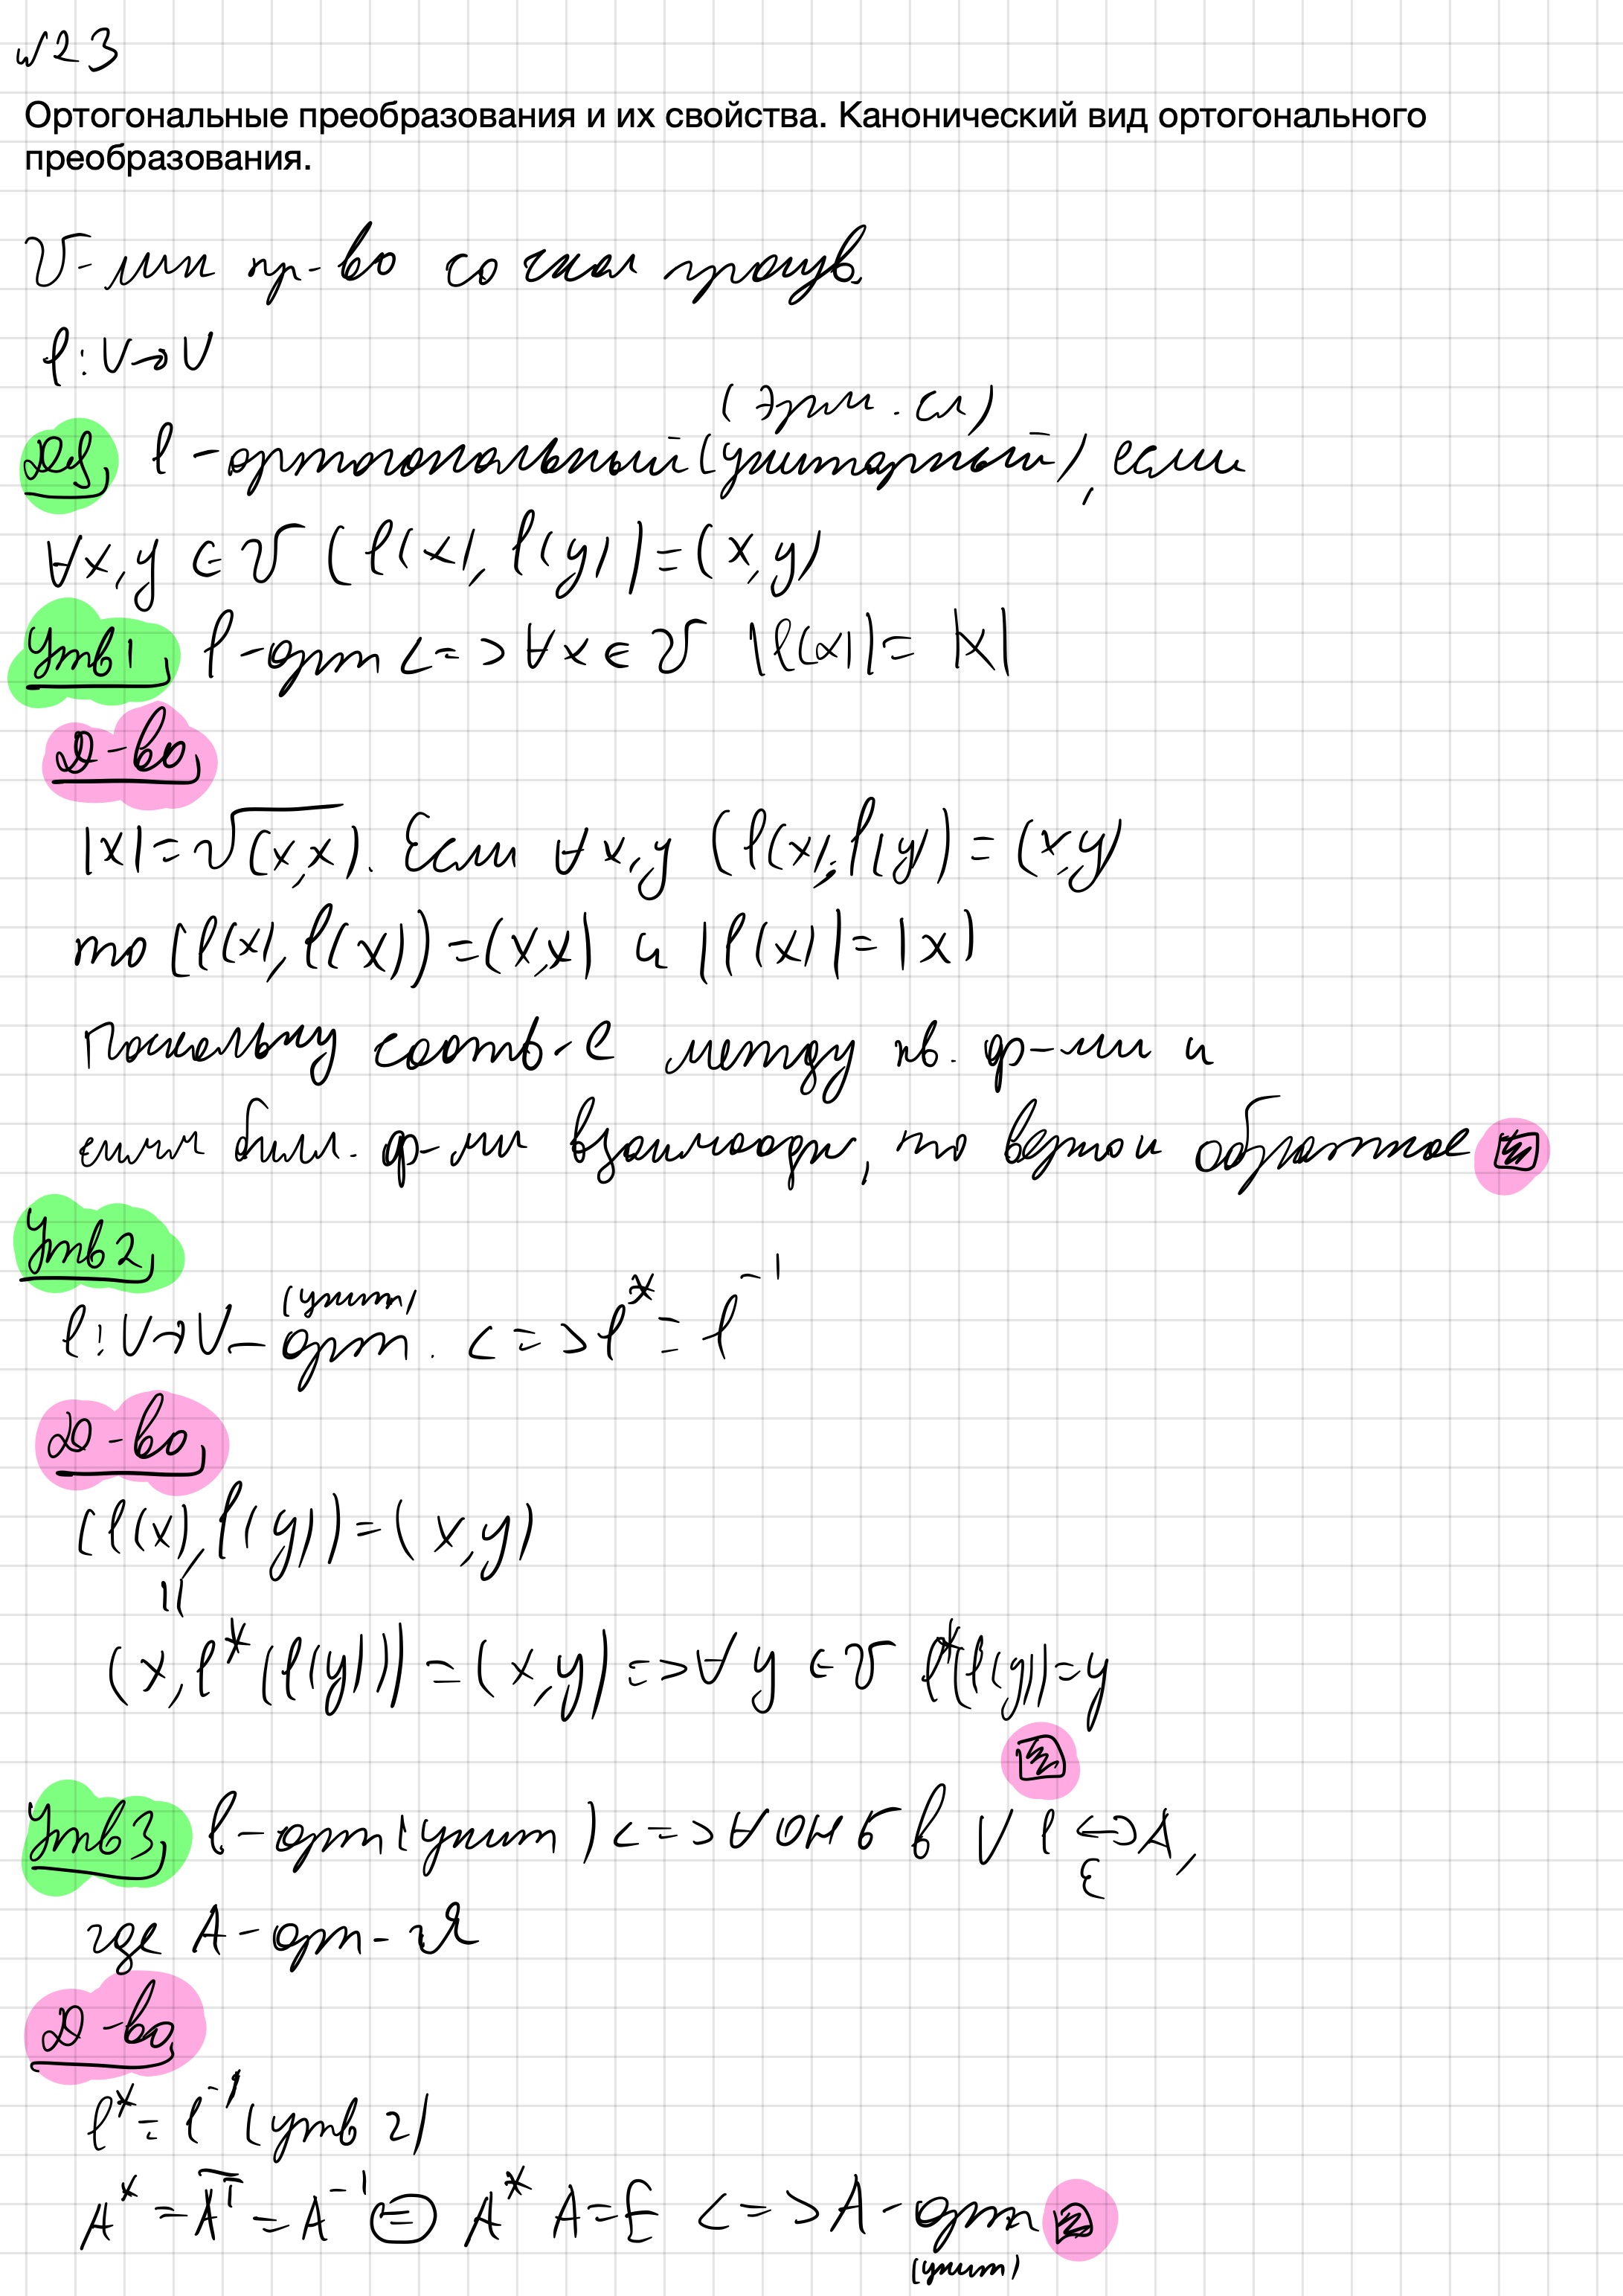 №23
Ортогональные преобразования и их свойства. Канонический вид ортогонального
преобразования.
V - лин пр-во со скал произв.
φ: V→V
(эрм. сл)
Def, φ - ортогональный (унитарный), если
∀x,y ∈ V (φ(x), φ(y)) = (x,y)
Утв1, φ - орт <=> ∀x ∈ V |φ(x)| = |x|
Д-во,
|x| = √(x,x). Если ∀x,y (φ(x), φ(y)) = (x,y)
то (φ(x), φ(x)) = (x,x) и |φ(x)| = |x|
Поскольку соотв-е между кв. ф-ми и
симм билл. ф-ми взаимоодн, то верно и обратное
Утв2,
(унит)
φ: V→V - орт. <=> φ* = φ⁻¹
Д-во,
(φ(x), φ(y)) = (x,y)
||
(x, φ*(φ(y))) = (x,y) => ∀y ∈ V φ*(φ(y)) = y
Утв3, φ - орт (унит) <=> ∀ ОНБ в V φ <-> A,
ε
где A - орт-я
Д-во,
φ* = φ⁻¹ (утв 2)
A* = A̅ᵀ = A⁻¹ (=) A* A = E <=> A - орт
(унит)